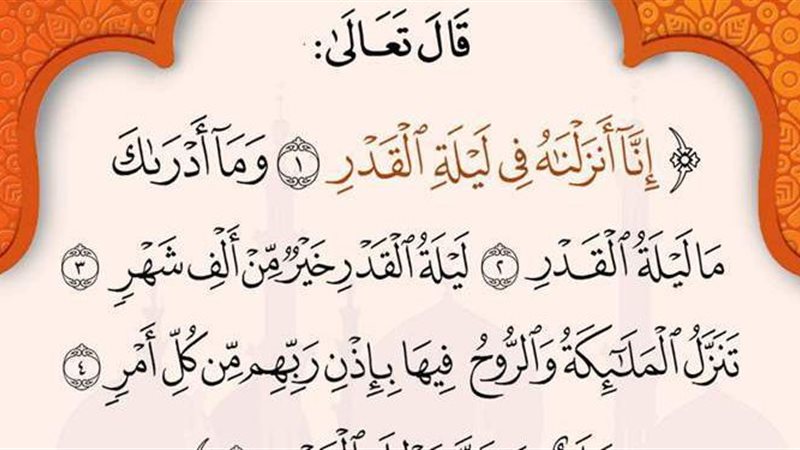 قَالَ تَعَـالَىٰ:
﴿ إِنَّآ أَنزَلْنَـٰهُ فِى لَيْلَةِ ٱلْقَدْرِ ۝١ وَمَآ أَدْرَىٰكَ
مَا لَيْلَةُ ٱلْقَدْرِ ۝٢ لَيْلَةُ ٱلْقَدْرِ خَيْرٌ مِّنْ أَلْفِ شَهْرٍ ۝٣
تَنَزَّلُ ٱلْمَلَـٰٓئِكَةُ وَٱلرُّوحُ فِيهَا بِإِذْنِ رَبِّهِم مِّن كُلِّ أَمْرٍ ۝٤